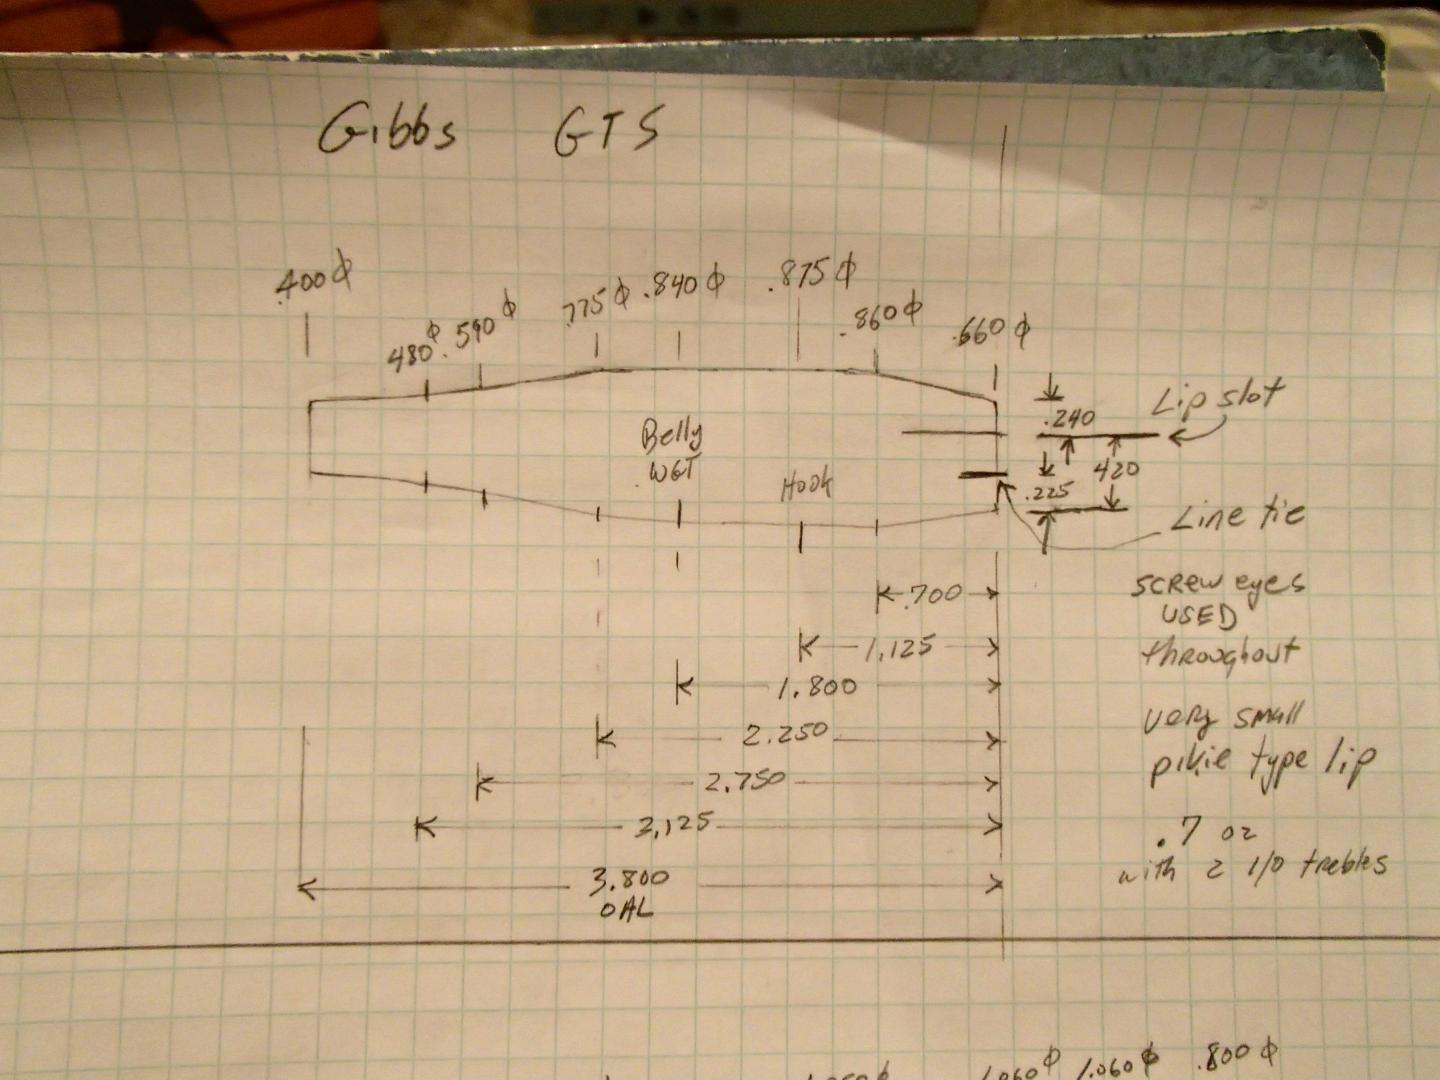 Gibbs GTS
.400 ϕ
.480 ϕ
.590 ϕ
.775 ϕ
.840 ϕ
.875 ϕ
.860 ϕ
.660 ϕ
Lip slot
.240
Belly
WGT
Hook
.420
.225
Line tie
.700
1.125
1.800
2.250
2.750
3.125
3.800
OAL
screw eyes
USED
throughout
very small
pikie type lip
.7 oz
with 2 1/0 trebles
1.060 ϕ 1.060 ϕ .800 ϕ